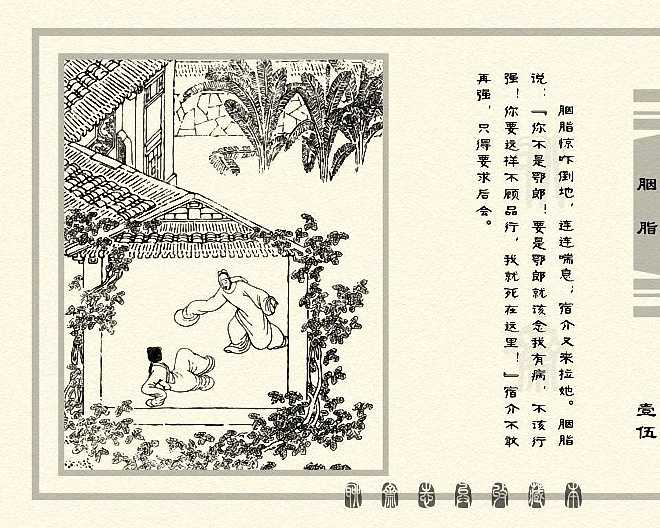 胭脂惊吓倒地，连连喘息；宿介又来拉她。胭脂
说：『你不是鄂郎！要是鄂郎就该念我有病，不该行
强！你要这样不顾品行，我就死在这里！』宿介不敢
再强，只得要求后会。
胭脂
壹伍
聊斋志异收藏本